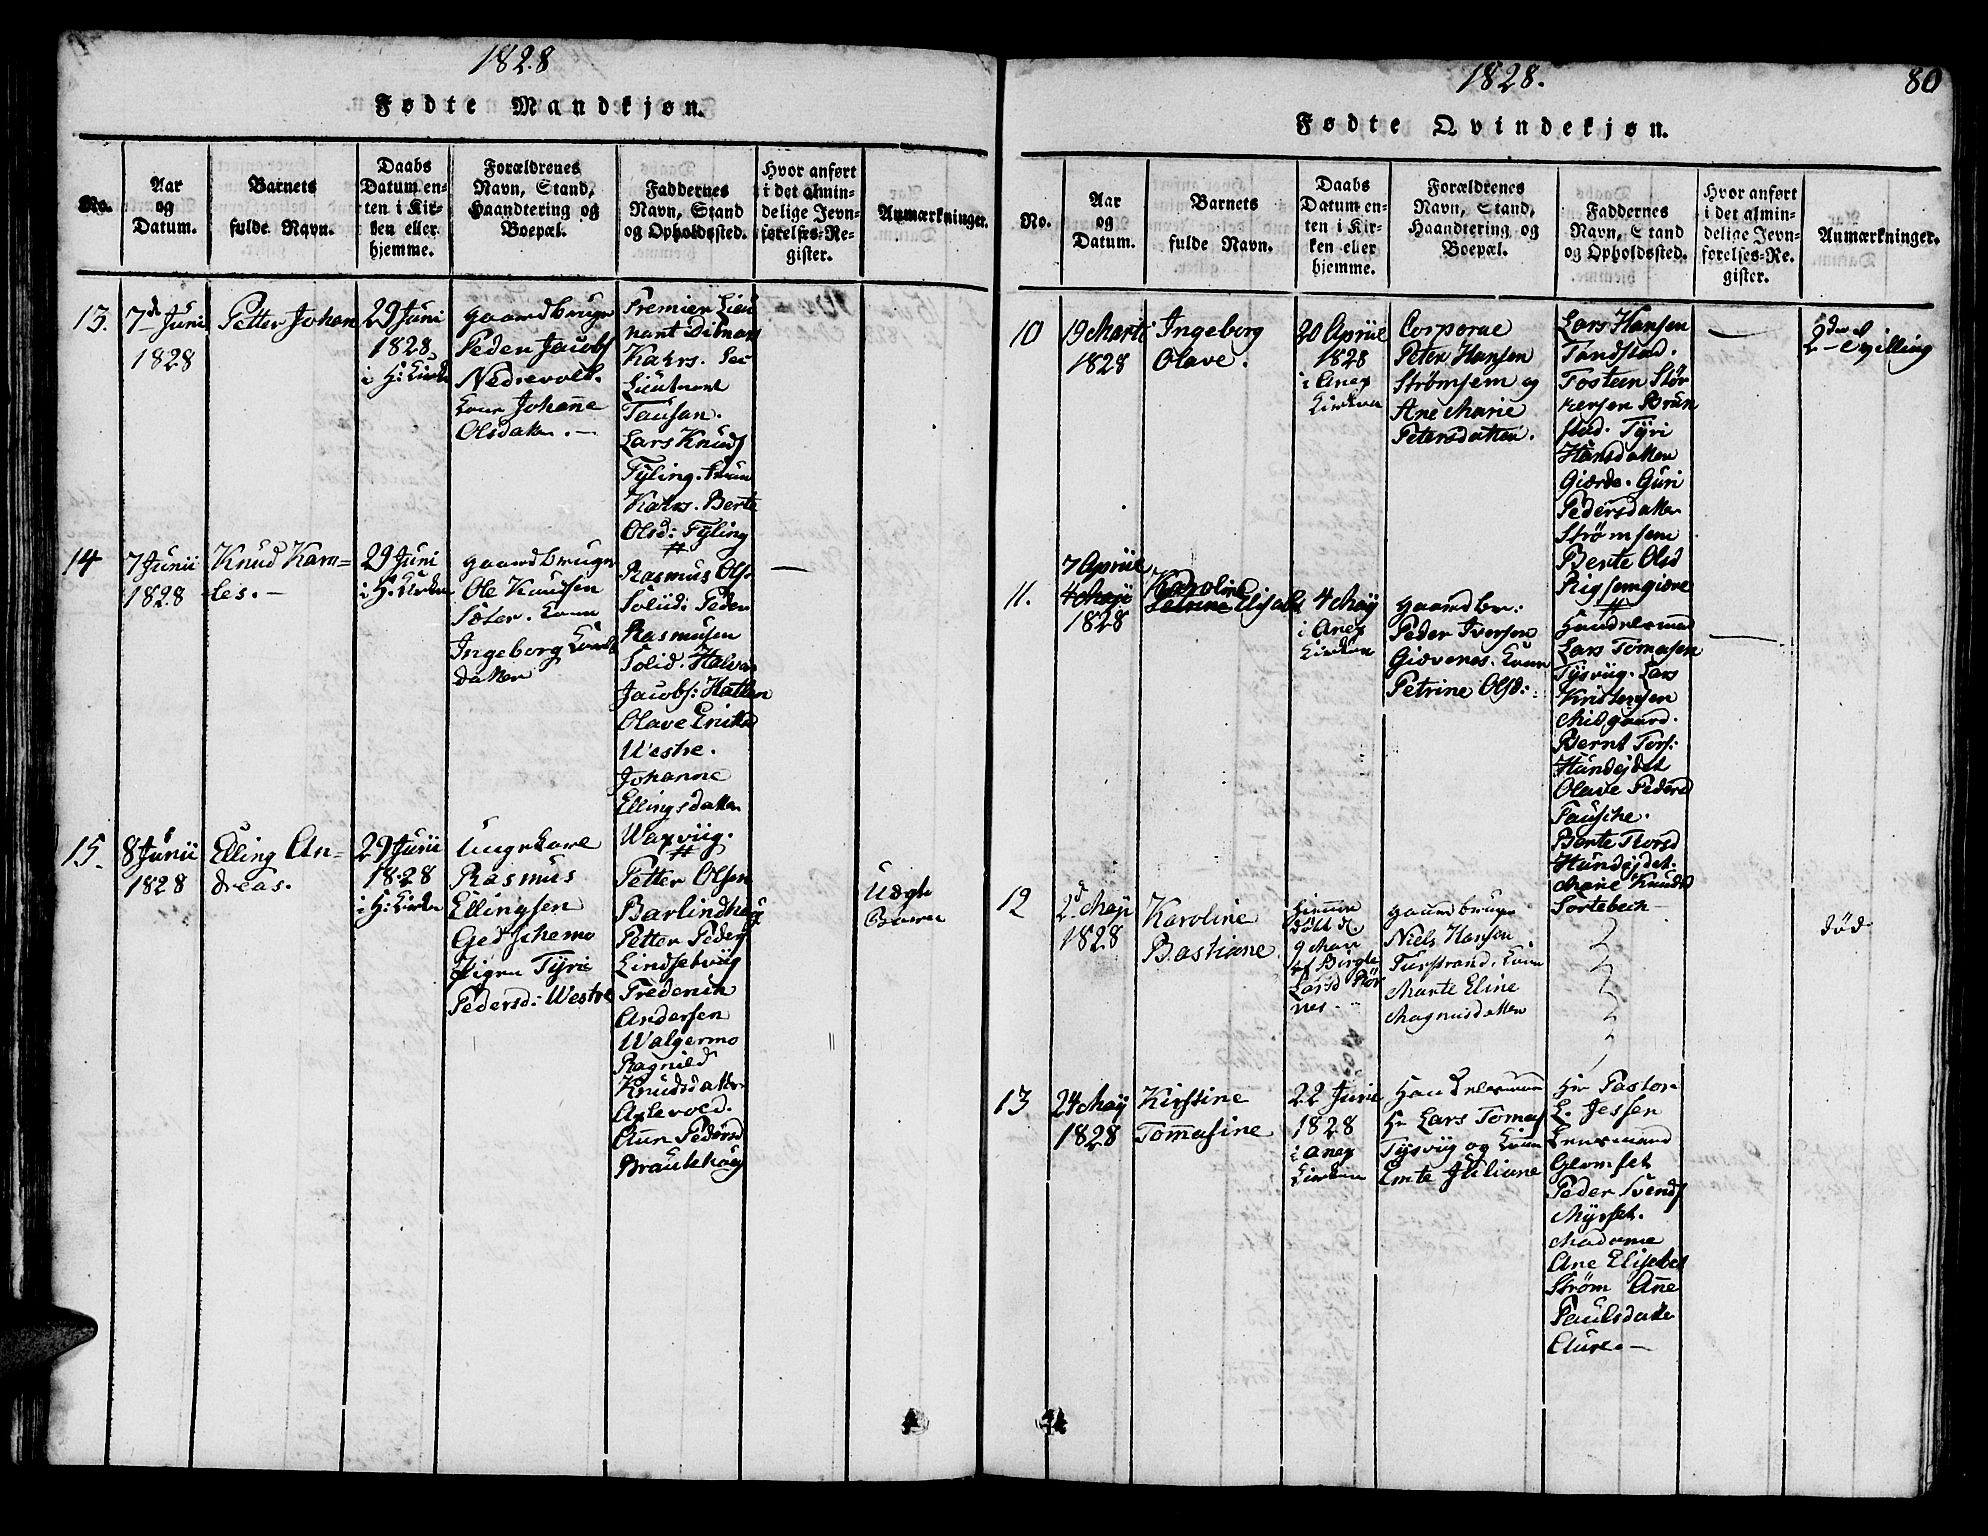 1828
Fødte Mandkjøn.
No.
Aar
og
Datum.
Barnets
fulde Navn.
Daabs
Datum en-
ten i Kir-
ken eller
hjemme.
Forældrenes
Navn, Stand,
Haandtering og
Boepæl.
Faddernes
Navn, Stand
og Opholdssted.
Hvor anført
i det almin-
delige Jevn-
førelses-Re-
gister.
Anmærkninger.
13.
7de Juni
1828
Petter Johan
29 Juni
1828
i H: Kirke
Gaardbruger
Peder Jacobs
Nedrevold.
Kone Johanne
Olsdatter. —
Premier Lieu
nant Ditman
Kahrs. Sec
Lieutnant
Tausan.
Lars Knuds
Fyling. Frue
Kahrs. Berte
Olsd: Fyling
14
7 Junii
1828
Knud Kar=
les. —
29 Juni
i H: Kirken
Gaardbruger
Ole Knudsen
Sæter. Kone
Ingeborg Knuds
datter
Rasmus Ols
Soliid: Peder
Rasmusen
Solid. Halvor
Jacobs: Hatlen
Olave Eriksd
Westre.
Johanne
Ellingsdatter
Waxviig.
—
15.
8 Junii
1828
Elling An=
dreas.
29 Junii
1828
i H: Kirken
Ungekarl
Rasmus
Ellingsen
Giedschemo
Pigen Tyri
Pedersd: Westre
Petter Olsen
Barlindhoug
Petter Peders
Lindsetviig
Frederik
Andersen
Walgermo
Ragnild
Knudsdatter
Aglevold.
Ann Pedersd
Brautehoug
Uægte
Barn
1828.
80
Fødte Qvindekjøn.
No.
Aar
og
Datum.
Barnets
fulde Navn.
Daabs
Datum en-
ten i Kir-
ken eller
hjemme.
Forældrenes
Navn, Stand,
Haandtering og
Boepæl.
Faddernes
Navn, Stand
og Opholdssted.
Hvor anført
i det almin-
delige Jevn-
førelses-Re-
gister.
Anmærkninger.
10
19 Marti
1828
Ingeborg
Olave.
20 Apriil
1828
i Anex
Kirken
Corporal
Peter Hansen
Strømsem og
Ane Marie
Petersdatter.
Lars Hansen
Tandstad.
Tosten Stør
kersen Brun
stad. Tyri
Hansdatter
Giærde. Guri
Pedersdatter
Strømsem
Berte Olsd
Rigsemgiære
—
2den Tvilling
11.
7 Apriil
4 Maji
1828
Karoline
Petrine Elisabt
4 Maji
i Anex
Kirken
Gaardbr:
Peder Iversen
Giævenes. Kone
Petrine Olsd:
Handelsmand
Lars Tomasen
Tysviig. Lars
Kristensen
Midgaard.
Bernt Tors:
Hundejdet
Olave Pedersd
Fausche.
Berte Thorsd
Hundejdet.
Marie Knudsd
Sortebech
—
12
2d Maji
1828
Karoline
Bastiane.
Hjemme
døbt d
9 Mai
af Birgte
Larsd Rør
nes.
Gaardbruger
Niels Hansen
Furstrand. Kone
Marte Eline
Magnusdatter
død
13
24 Maij
1828
Kirstine
Tommasine
22 Junii
1828
i Anex
Kirken
Handelsmand
Hr Lars Tomas
Tysviig og Kone
Emte Juliane
Hr Pastor
L. Jessen
Lensmand
Glomset
Peder Svends
Myrset.
Madame
Ane Elisebet
Strøm Ane
Paulsdatter
Aure. —